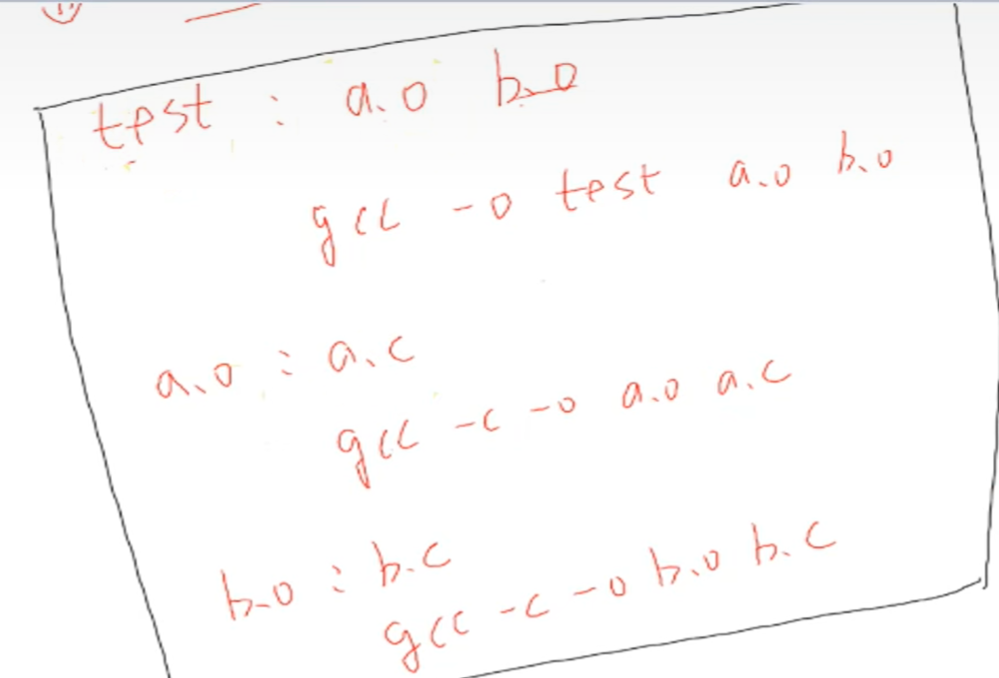 test : a.o b.o
gcc -o test a.o b.o
a.o : a.c
gcc -c -o a.o a.c
b.o : b.c
gcc -c -o b.o b.c